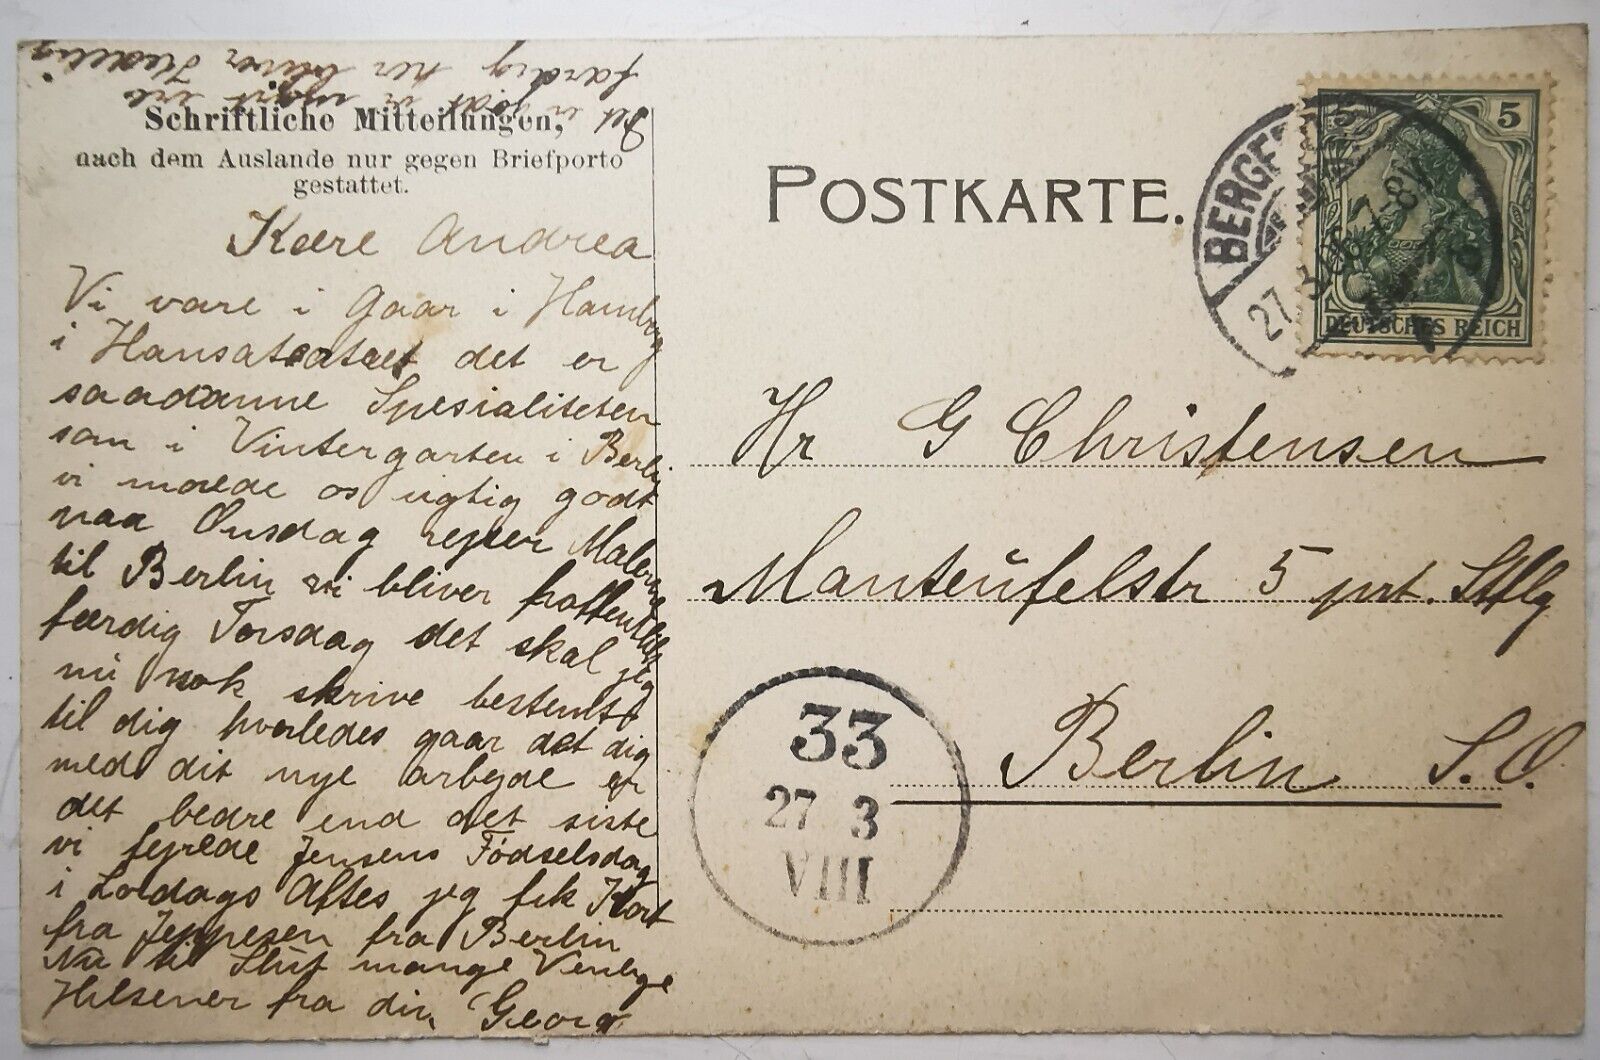 Det er godt vi
færdig her bliver
Schriftliche Mitteilungen,
nach dem Auslande nur gegen Briefporto
gestattet.
Kære Andrea
Vi vare i Gaar i Hamborg
i Hansateatret det er
saadanne Spesialiteten
som i Vintergarten i Berlin
vi morede os rigtig godt
paa Onsdag rejser Malerne
til Berlin vi bliver
færdig Torsdag det skal jeg
nu nok skrive bestemt
til dig hvorledes gaar det dig
med dit nye arbejde er
det bedre end det siste
vi fejrede Jensens Födselsdag
i Lördags Aftes jeg fik Kort
fra Jeppesen fra Berlin
Nu til Slut mange Venlige
Hilsener fra din Georg
POSTKARTE.
5 5
DEUTSCHES REICH
27. 7-8V
Hr G Christensen
Manteufelstr 5 prt. Stflg
Berlin S.O.
33
27 3
VIII